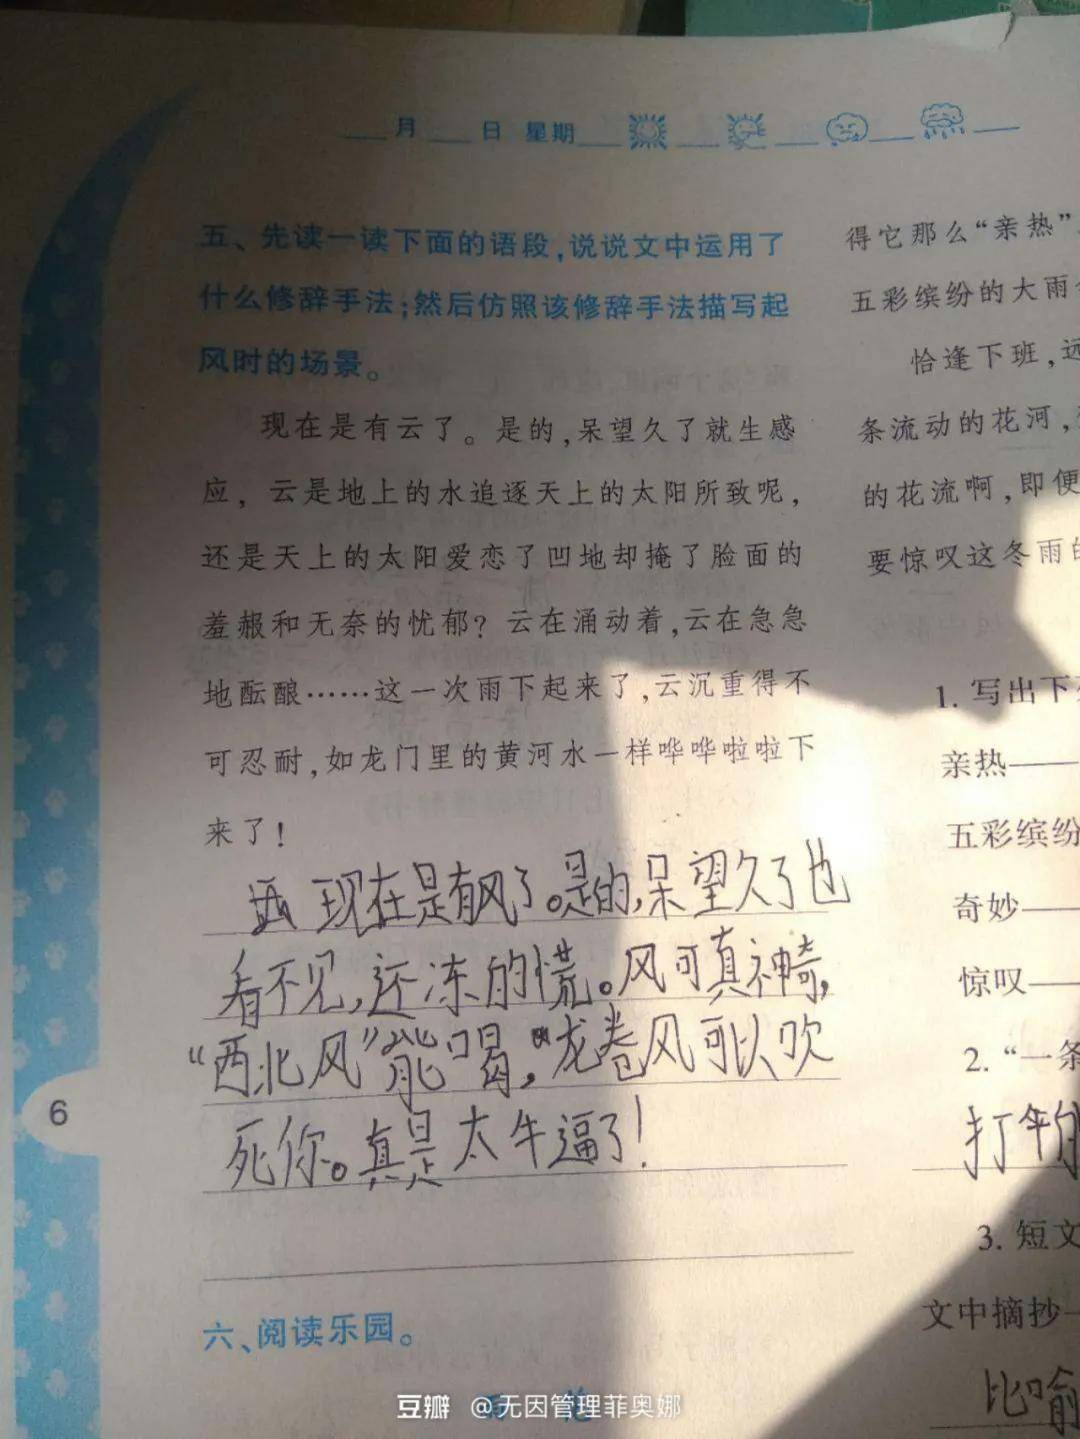 月 日 星期
五、先读一读下面的语段,说说文中运用了
什么修辞手法;然后仿照该修辞手法描写起
风时的场景。
现在是有云了。是的,呆望久了就生感
应,云是地上的水追逐天上的太阳所致呢,
还是天上的太阳爱恋了凹地却掩了脸面的
羞赧和无奈的忧郁?云在涌动着,云在急急
地酝酿……这一次雨下起来了,云沉重得不
可忍耐,如龙门里的黄河水一样哗哗啦啦下
来了!
现在是有风了。是的,呆望久了也
看不见,还冻的慌。风可真神奇,
“西北风”能喝,龙卷风可以吹
死你。真是太牛逼了!
6
六、阅读乐园。
得它那么“亲热”
五彩缤纷的大雨
恰逢下班,远
条流动的花河,
的花流啊,即便
要惊叹这冬雨的
1. 写出下
亲热——
五彩缤纷
奇妙——
惊叹——
2. “一条
打
3. 短文
文中摘抄
比喻
豆瓣 @无因管理菲奥娜